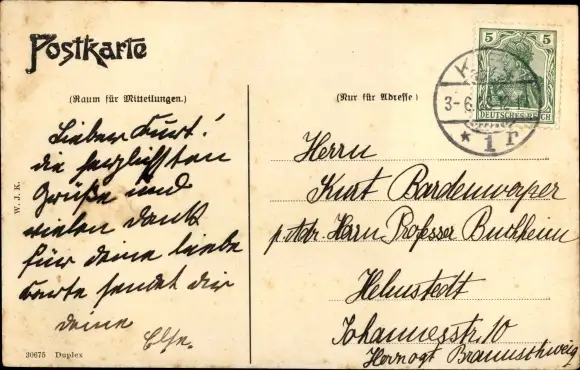 Postkarte
(Raum für Mitteilungen.)
(Nur für Adresse)
5 5
DEUTSCHES REICH
3-6
* 1 r
Lieber Kurt!
die herzlichsten
Grüße und
vielen Dank
für deine liebe
Karte sendet dir
deine
Else.
Herrn
Kurt Bardenwerper
p. Adr. Herrn Professor Buchheim
Helmstedt
Johannesstr. 10
Herzogt. Braunschweig
W. J. K.
30675 Duplex